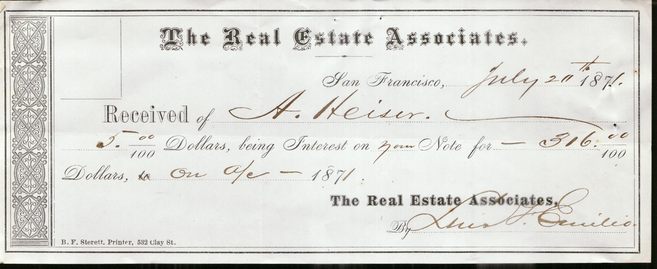 The Real Estate Associates.
San Francisco, July 20th 1871.
Received of A. Heiser.
5. 00/100 Dollars, being Interest on your Note for — 316. 00/100
Dollars, to on a/c — 1871.
The Real Estate Associates,
By Luis F. Emilio
B. F. Sterett, Printer, 532 Clay St.